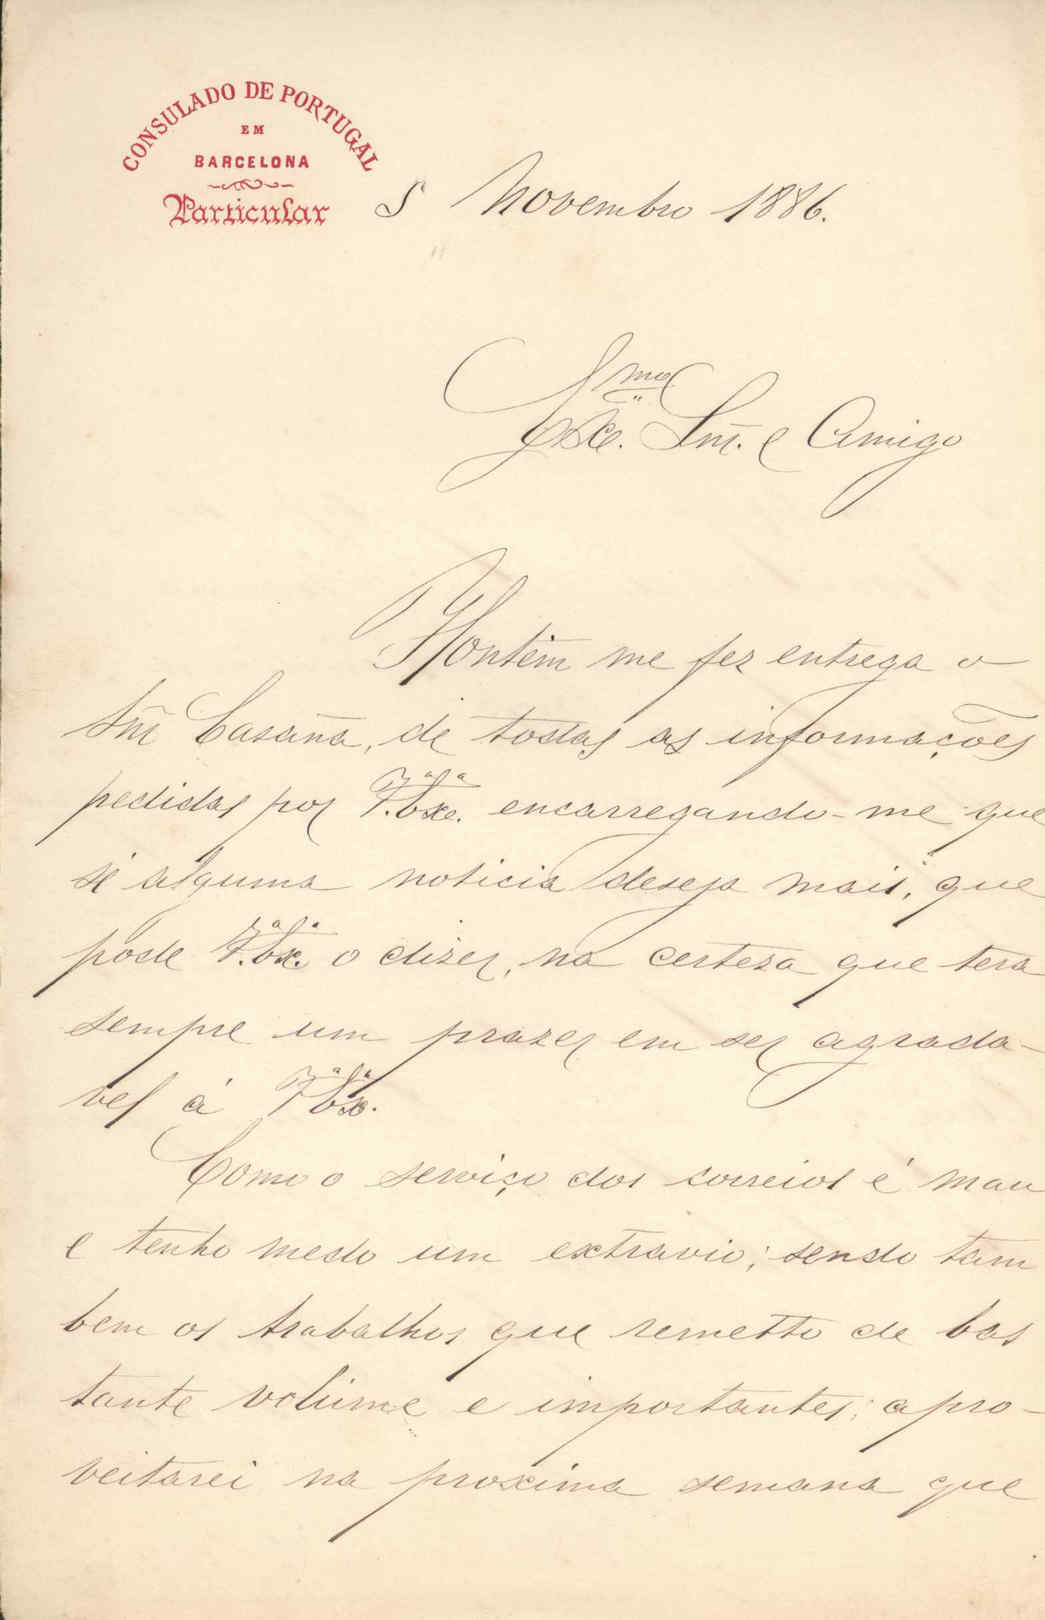 CONSULADO DE PORTUGAL
EM
BARCELONA
Particular
5 Novembro 1886.
Exce. Snr. e Amigo
Hontem me fez entrega o
Snr Casaña, de todas as informações
pedidas por V.Exe. encarregando-me que
se alguma noticia deseja mais, que
pode V.Ex. o dizer, na certeza que tera
sempre um prazer em ser agrada-
vel á V Ex.
Como o serviço dos correios é mau
e tenho medo um extravio; sendo tam
bem os trabalhos que remetto de bas
tante volume e importantes; apro-
veitarei na proxima semana que